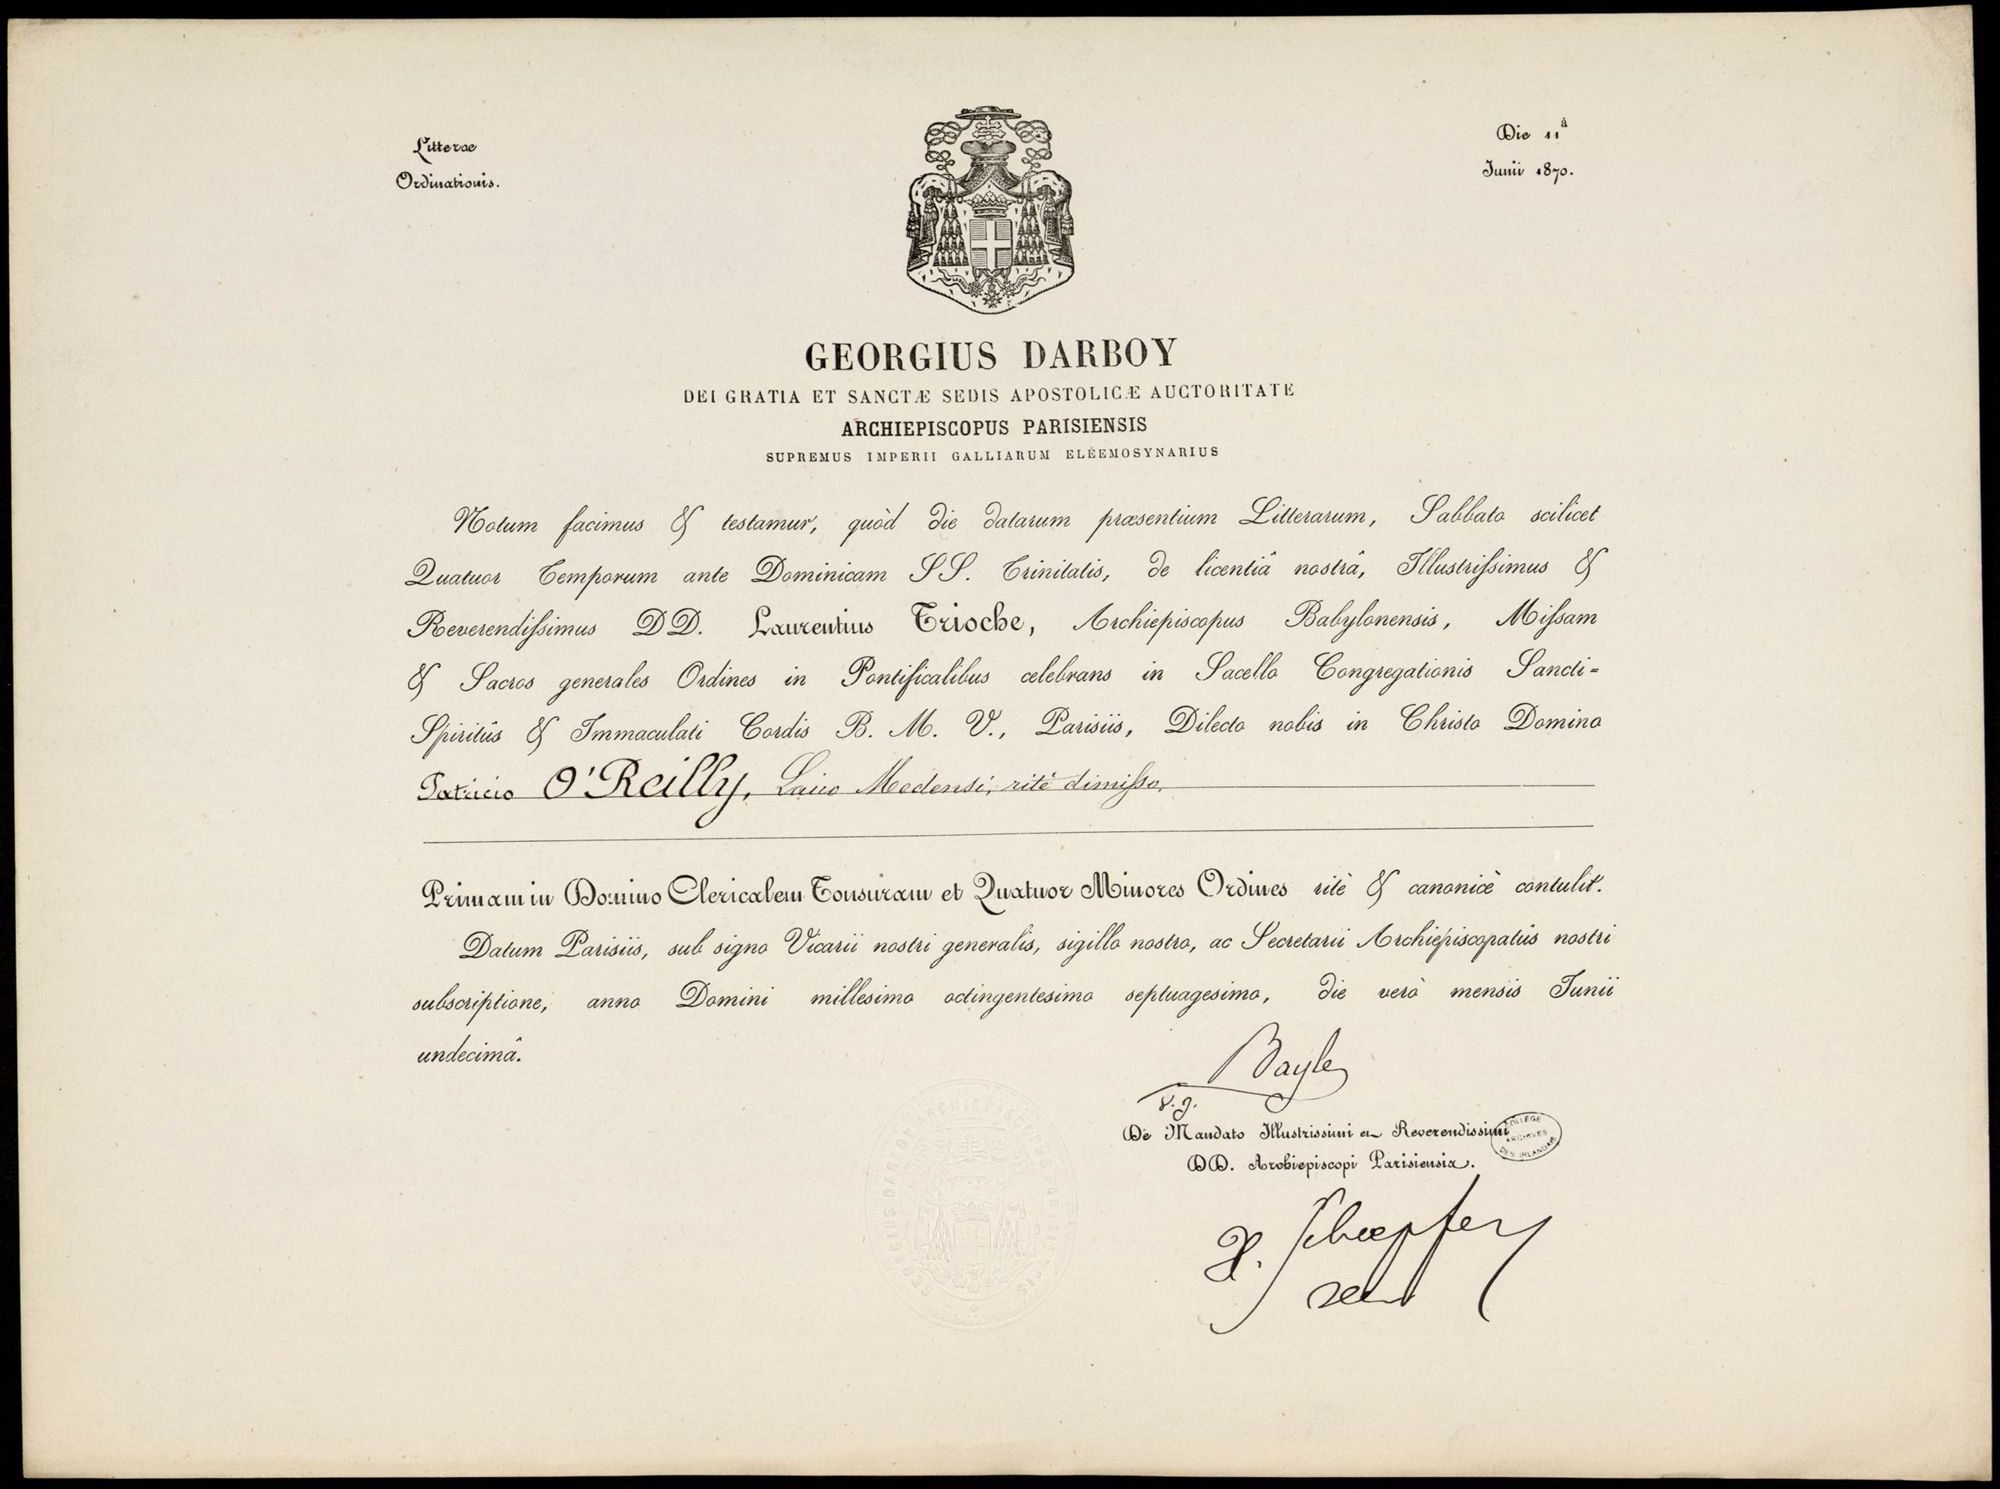 Litterae
Ordinationis.
Die 11ª
Junii 1870.
GEORGIUS DARBOY
DEI GRATIA ET SANCTÆ SEDIS APOSTOLICÆ AUCTORITATE
ARCHIEPISCOPUS PARISIENSIS
SUPREMUS IMPERII GALLIARUM ELEEMOSYNARIUS
Notum facimus & testamur, quòd die datarum præsentium Litterarum, Sabbato scilicet
Quatuor Temporum ante Dominicam SS. Trinitatis, de licentiâ nostrâ, Illustrissimus &
Reverendissimus DD. Laurentius Trioche, Archiepiscopus Babylonensis, Missam
& Sacros generales Ordines in Pontificalibus celebrans in Sacello Congregationis Sancti=
Spiritûs & Immaculati Cordis B. M. V., Parisiis, Dilecto nobis in Christo Domino
Patricio O'Reilly, Laico Medensi, ritè dimisso,
Primam in Domino Clericalem Tonsuram et Quatuor Minores Ordines ritè & canonicè contulit.
Datum Parisiis, sub signo Vicarii nostri generalis, sigillo nostro, ac Secretarii Archiepiscopatûs nostri
subscriptione, anno Domini millesimo octingentesimo septuagesimo, die verò mensis Junii
undecimâ.
Bayle
v. g.
De Mandato Illustrissimi et Reverendissimi
DD. Archiepiscopi Parisiensis.
COLLEGE
ARCHIVES
DES IRLANDAIS
Schoepfer